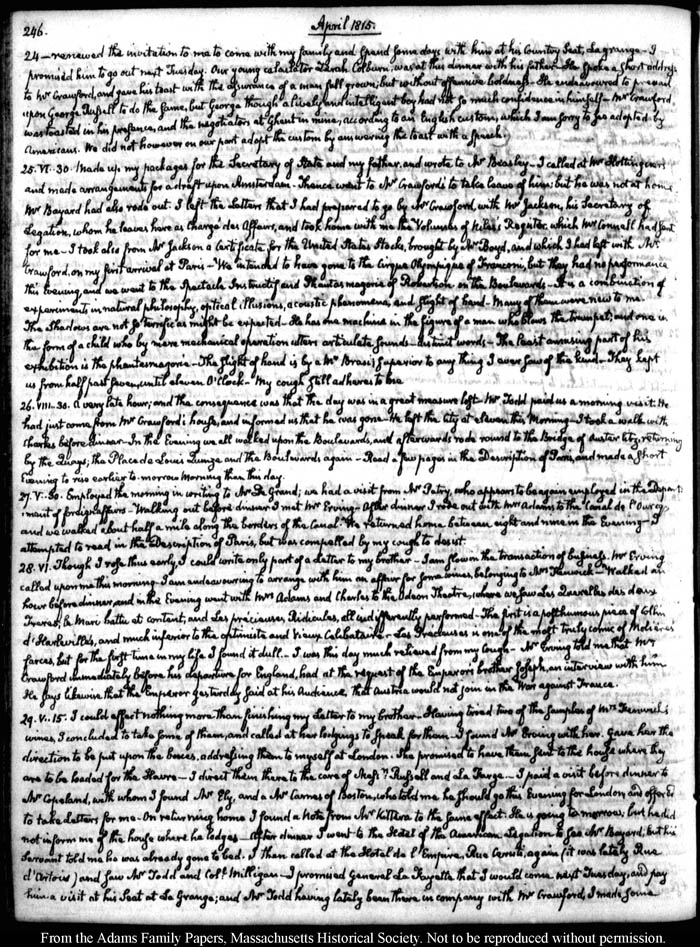 246.
April 1815.
24 — renewed the invitation to me to come with my family and spend some days with him at his Country Seat, La grange — I
promised him to go out next Tuesday. Our young calculator Zerah Colburn, was at this dinner with his father. He spoke a short address
to Mr Crawford, and gave his toast with the assurance of a man full grown; but without offensive boldness. He endeavoured to prevail
upon George Russell to do the same, but George though a lively and intelligent boy had not so much confidence in himself — Mr Crawford
was toasted in his presence, and the negotiators at Ghent in mine, according to an English custom, which I am sorry to see adopted by
Americans. We did not however on our part adopt the custom by answering the toast with a speech.
25. VI. 30. Made up my packages for the Secretary of State and my father, and wrote to Mr Beasley — I called at Mr Hottinguer's
and made arrangements for a draft upon Amsterdam — Thence went to Mr Crawford's to take leave of him; but he was not at home
Mr Bayard had also rode out. I left the Letters that I had prepared to go by Mr Crawford, with Mr Jackson, his Secretary of
Legation, whom he leaves here as Chargé des Affaires, and took home with me the Volumes of Niles's Register which Mr Connell had sent
for me — I took also from Mr Jackson a Certificate for the United States Stocks, brought by Mr Boyd, and which I had left with Mr
Crawford, on my first arrival at Paris — We intended to have gone to the Cirque Olympique of Franconi, but they had no performance
this Evening, and we went to the Spectacle Instructif and Phantasmagorie of Robertson on the Boulevards — It is a combination of
experiments in natural philosophy, optical illusions, acoustic phenomena, and slight of hand — Many of them were new to me.
The Shadows are not so terrific as might be expected — He has one machine in the figure of a man who blows the trumpet; and one in
the form of a child who by mere mechanical operation utters articulate sounds — distinct words — The least amusing part of his
exhibition is the phantasmagorie — The slight of hand is by a Mr Brassi, superior to any thing I ever saw of the kind — They kept
us from half past seven, until eleven O'Clock — My cough still adheres to me
26. VIII. 30. A very late hour; and the consequence was that the day was in a great measure lost — Mr Todd paid us a morning visit. He
had just come from Mr Crawford's house, and informed us that he was gone — He left the city at eleven this Morning — I took a walk with
Charles before dinner — In the Evening we all walked upon the Boulevards, and afterwards rode round to the Bridge of Austerlitz, returning
by the Quays, the Place de Louis Quinze and the Boulevards again — Read a few pages in the Description of Paris, and made a short
Evening to rise earlier to-morrow Morning than this day.
27. V. 30. Employed the morning in writing to Mr Le Grand; we had a visit from Mr Petry, who appears to be again employed in the Depart-
-ment of foreign affairs — Walking out before dinner I met Mr Erving — After dinner I rode out with Mrs Adams to the Canal de l'Ourcq
and we walked about half a mile along the borders of the Canal. We returned home between eight and nine in the Evening — I
attempted to read in the Description of Paris, but was compelled by my cough to desist.
28. VI. Though I rose thus early, I could write only part of a Letter to my brother — I am slow in the transaction of business. Mr Erving
called upon me this morning. I am endeavouring to arrange with him an affair for some wines, belonging to Mrs Fenwick — Walked an
hour before dinner, and in the Evening went with Mrs Adams and Charles to the Odeon Theatre, where we saw Les Querelles des deux
Freres, Le Mari battu et content, and Les précieuses Ridicules, all indifferently performed — The first is a posthumous piece of Collin
d'Harleville's, and much inferior to the optimiste and vieux Celibataire — Les Precieuses is one of the most truly comic of Moliere's
farces, but for the first time in my life I found it dull. — I was this day much relieved from my Cough — Mr Erving told me that Mr
Crawford immediately before his departure for England, had at the request of the Emperor's brother Joseph, an interview with him
He says likewise that the Emperor yesterday said at his Audience, that Austria would not join in the War against France.
29. V. 15. I could effect nothing more than finishing my Letter to my brother. Having tried two of the samples of Mrs Fenwick's
wines, I concluded to take some of them, and called at her lodgings to speak for them — I found Mr Erving with her. Gave her the
direction to be put upon the boxes, addressing them to myself at London. She promised to have them sent to the house where they
are to be loaded for the Havre — I direct them there to the care of Messrs Russell and La Farge — I paid a visit before dinner to
Mr Copeland, with whom I found Mr Ely, and a Mr Carnes of Boston, who told me he should go this Evening for London, and offered
to take Letters for me. On returning home I found a Note from Mr to the same effect. He is going to-morrow, but he did
not inform me of the house where he lodges — After dinner I went to the Hotel of the American Legation to see Mr Bayard, but his
Servant told me he was already gone to bed. I then called at the Hotel de l'Empire, Rue Cerutti, again (it was lately Rue
d'Artois) and saw Mr Todd and Coll Milligan — I promised General La Fayette that I would come next Tuesday, and pay
him a visit at his Seat at La Grange; and Mr Todd having lately been there in company with Mr Crawford, I made some
From the Adams Family Papers, Massachusetts Historical Society. Not to be reproduced without permission.